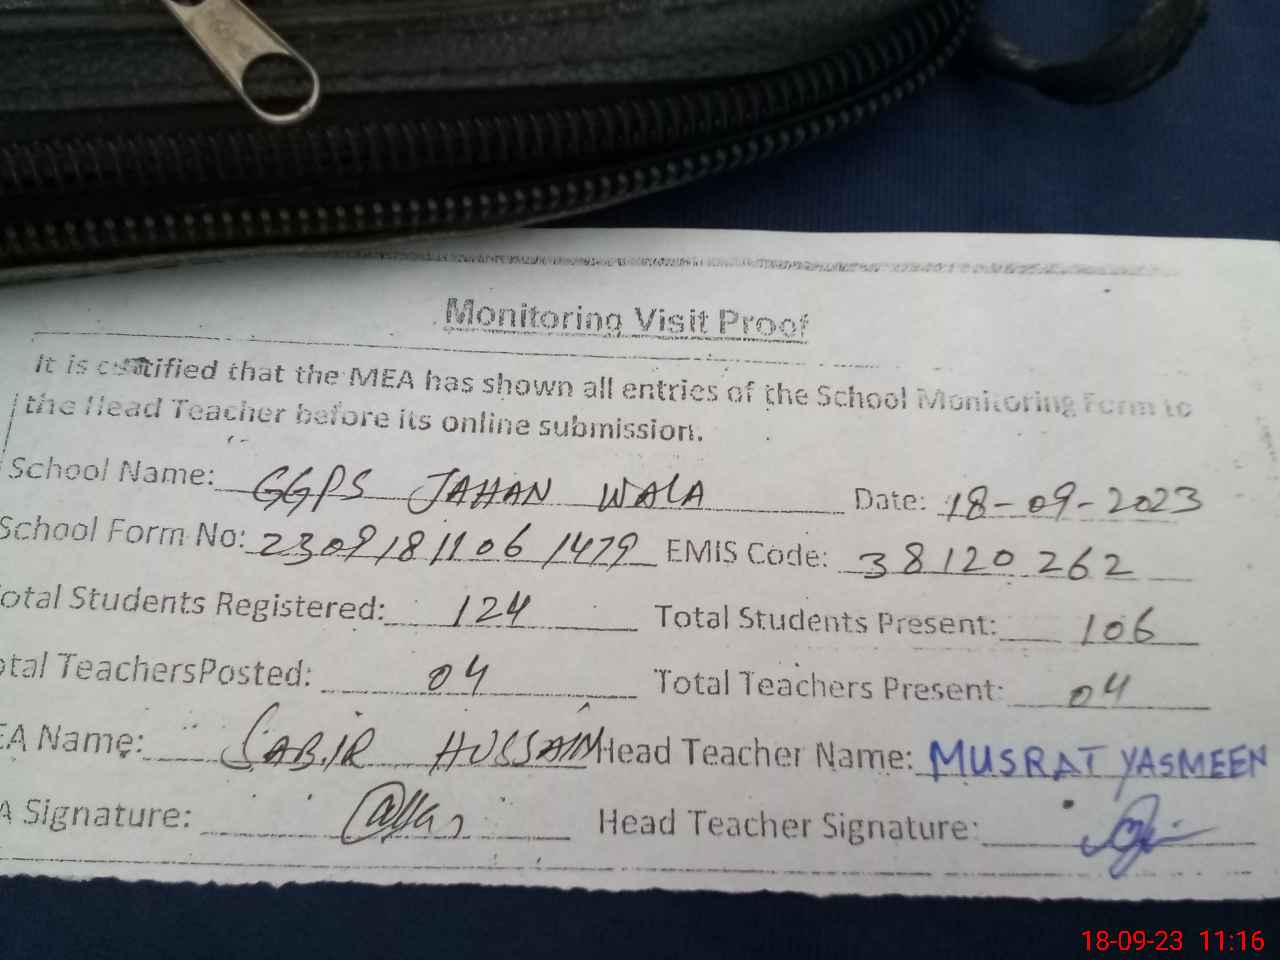 Monitoring Visit Proof
It is certified that the MEA has shown all entries of the School Monitoring Form to
the Head Teacher before its online submission.
School Name: GGPS JAHAN WALA Date: 18-09-2023
School Form No: 23091811061479 EMIS Code: 38120262
otal Students Registered: 124 Total Students Present: 106
otal TeachersPosted: 04 Total Teachers Present: 04
EA Name: SABIR HUSSAIN Head Teacher Name: MUSRAT YASMEEN
A Signature: Head Teacher Signature:
18-09-23 11:16